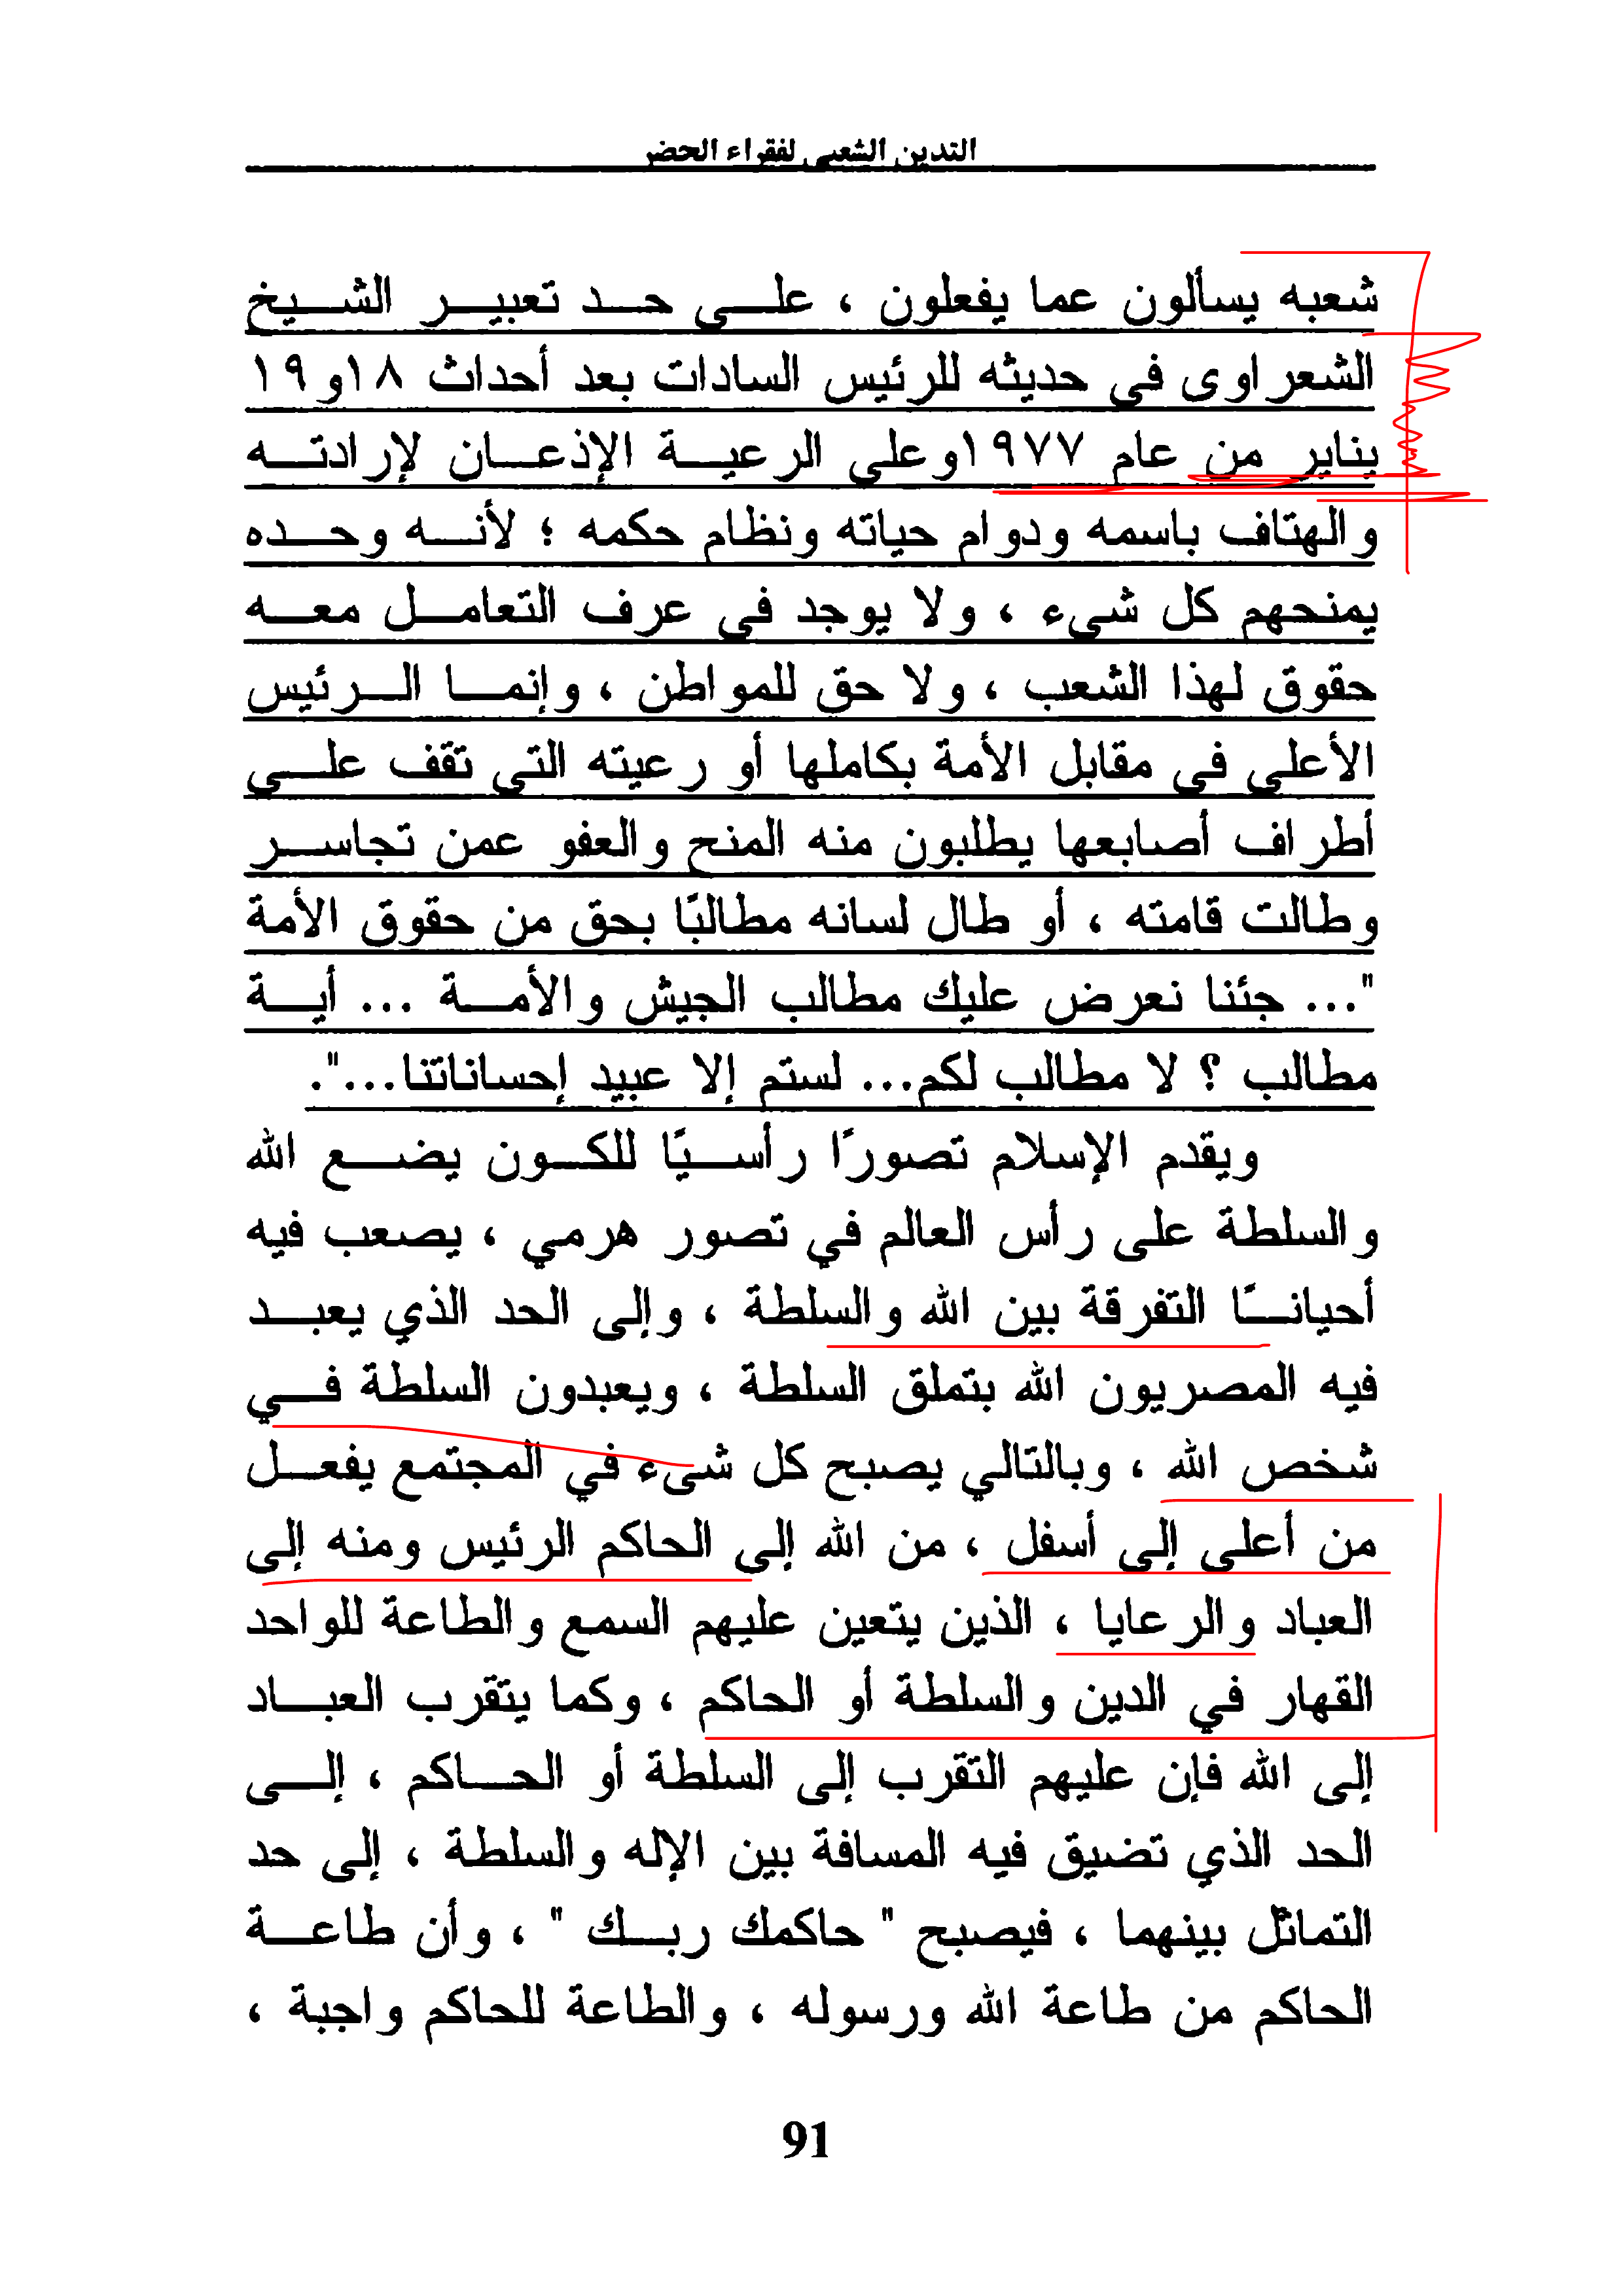 التدين الشعبى لفقراء الحضر
شعبه يسألون عما يفعلون ، على حد تعبير الشيخ
الشعراوى فى حديثه للرئيس السادات بعد أحداث ١٨و١٩
يناير من عام ١٩٧٧وعلى الرعية الإذعان لإرادته
والهتاف باسمه ودوام حياته ونظام حكمه ؛ لأنه وحده
يمنحهم كل شىء ، ولا يوجد فى عرف التعامل معه
حقوق لهذا الشعب ، ولا حق للمواطن ، وإنما الرئيس
الأعلى فى مقابل الأمة بكاملها أو رعيته التى تقف على
أطراف أصابعها يطلبون منه المنح والعفو عمن تجاسر
وطالت قامته ، أو طال لسانه مطالبًا بحق من حقوق الأمة
"... جئنا نعرض عليك مطالب الجيش والأمة ... أية
مطالب ؟ لا مطالب لكم... لستم إلا عبيد إحساناتنا...".
ويقدم الإسلام تصورًا رأسيًا للكون يضع الله
والسلطة على رأس العالم في تصور هرمي ، يصعب فيه
أحيانًا التفرقة بين الله والسلطة ، وإلى الحد الذي يعبد
فيه المصريون الله بتملق السلطة ، ويعبدون السلطة في
شخص الله ، وبالتالي يصبح كل شىء في المجتمع يفعل
من أعلى إلى أسفل ، من الله إلى الحاكم الرئيس ومنه إلى
العباد والرعايا ، الذين يتعين عليهم السمع والطاعة للواحد
القهار في الدين والسلطة أو الحاكم ، وكما يتقرب العباد
إلى الله فإن عليهم التقرب إلى السلطة أو الحاكم ، إلى
الحد الذي تضيق فيه المسافة بين الإله والسلطة ، إلى حد
التماثل بينهما ، فيصبح " حاكمك ربك " ، وأن طاعة
الحاكم من طاعة الله ورسوله ، والطاعة للحاكم واجبة ،
91